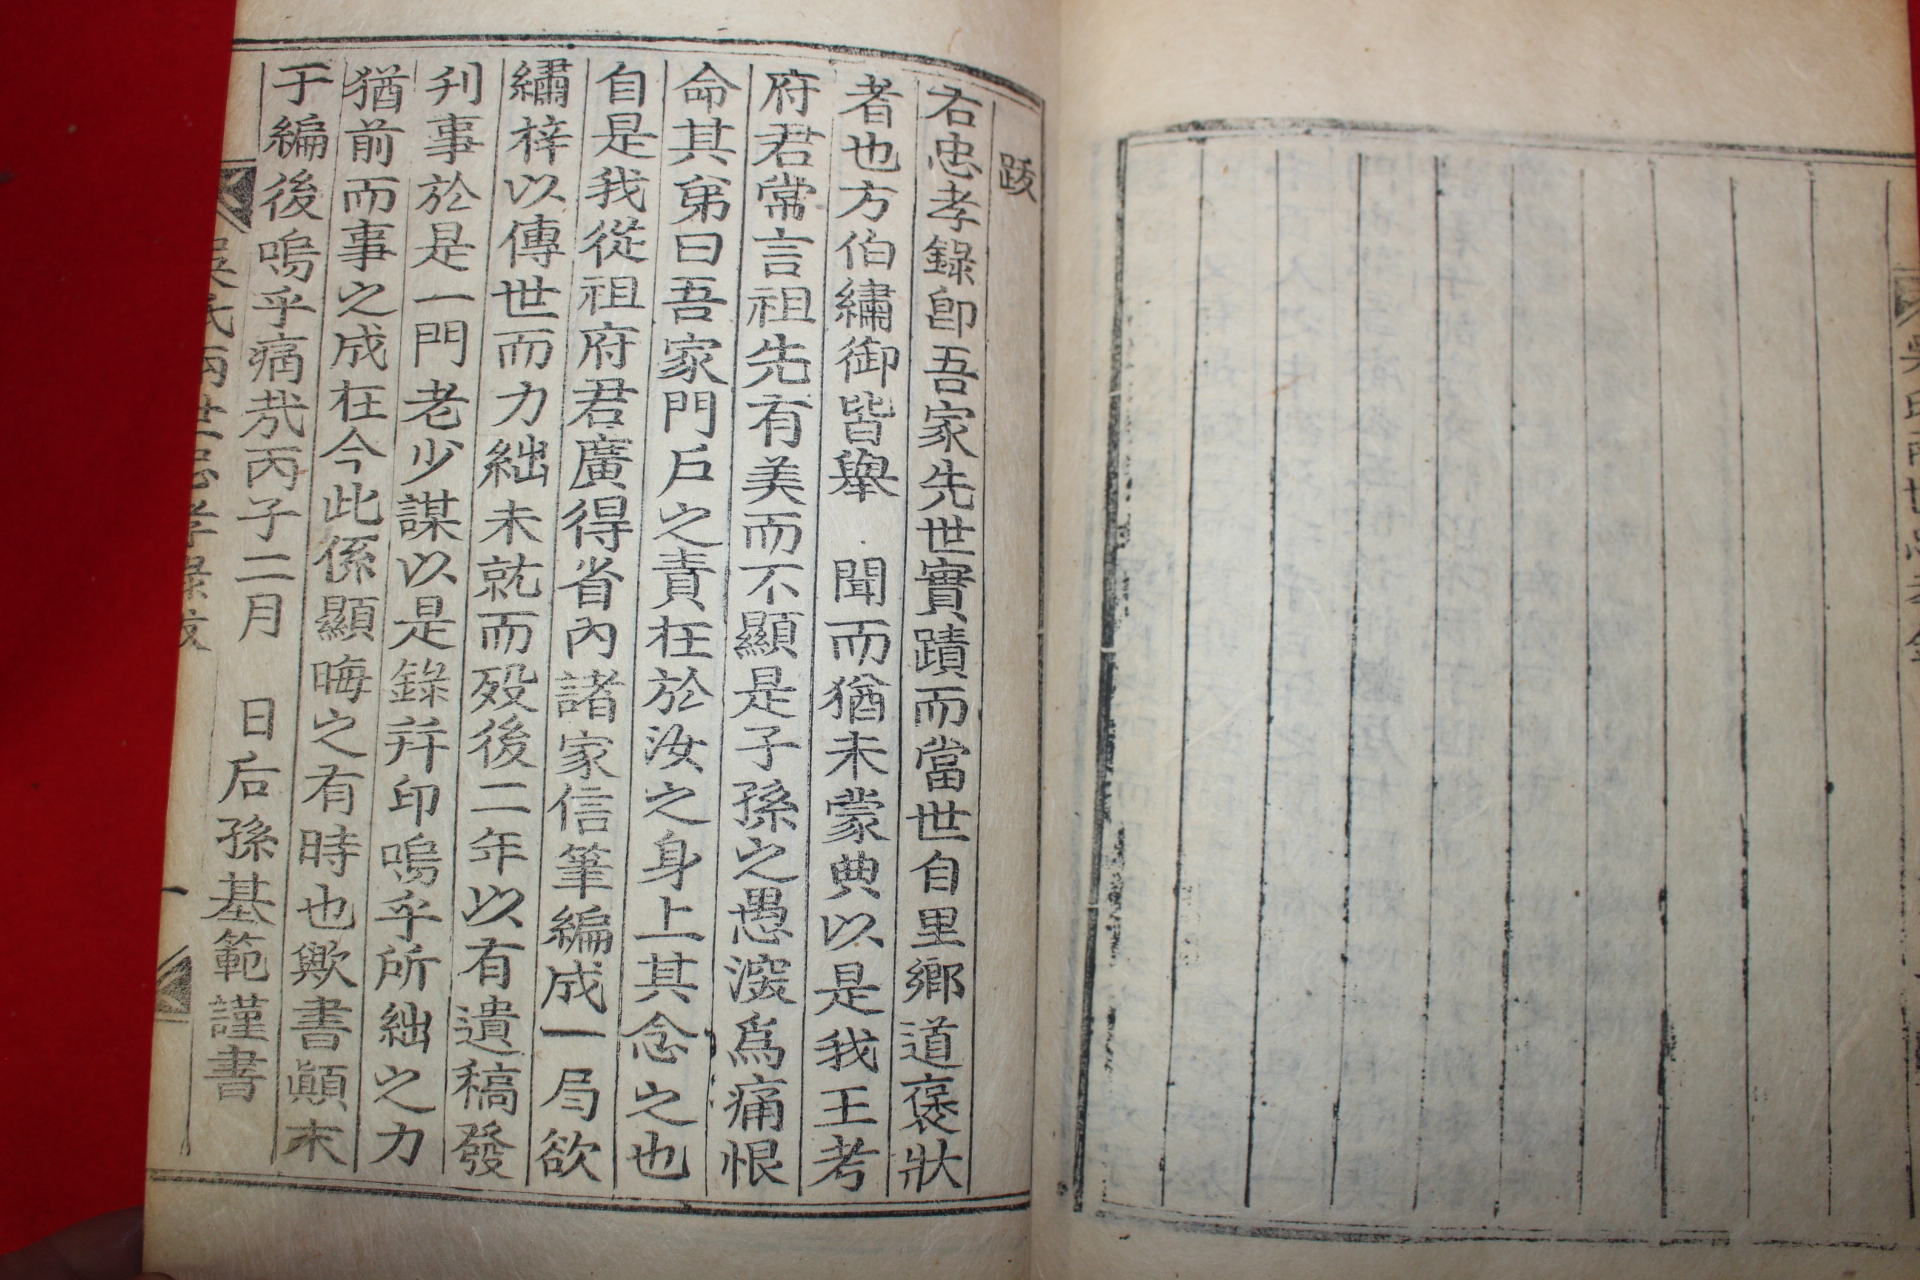 跋
右忠孝錄卽吾家先世實蹟而當世自里鄉道褒狀
者也方伯繡御皆擧 聞而猶未蒙典以是我王考
府君常言祖先有美而不顯是子孫之愚深爲痛恨
命其弟曰吾家門戶之責在於汝之身上其念之也
自是我從祖府君廣得省內諸家信筆編成一局欲
繡梓以傳世而力絀未就而歿後二年以有遺稿發
刋事於是一門老少謀以是錄幷印嗚乎所絀之力
猶前而事之成在今此係顯晦之有時也歟書顚末
于編後嗚乎痛哉丙子二月 日后孫基範謹書
吳氏兩世忠孝錄跋
一
吳氏兩世忠孝錄